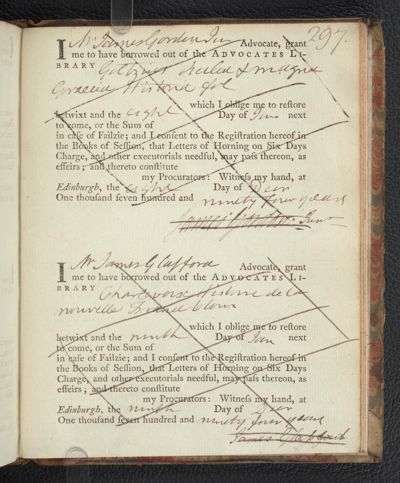 297.
I Mr James Gordon Jun Advocate, grant
me to have borrowed out of the ADVOCATES LI-
BRARY Goltzius Sicilia & magna
Graecia Historia fol
which I oblige me to reſtore
betwixt and the eight Day of Jan next
to come, or the Sum of
in caſe of Failzie; and I conſent to the Regiſtration hereof in
the Books of Seſſion, that Letters of Horning on Six Days
Charge, and other executorials needful, may paſs thereon, as
effeirs; and thereto conſtitute
my Procurators: Witneſs my hand, at
Edinburgh, the eight Day of Decr
One thouſand ſeven hundred and ninety four years
James Gordon Junr
I Mr James Clapford Advocate, grant
me to have borrowed out of the ADVOCATES LI-
BRARY Charlevoix Histoire de la
nouvelle France
which I oblige me to reſtore
betwixt and the ninth Day of Jan next
to come, or the Sum of
in caſe of Failzie; and I conſent to the Regiſtration hereof in
the Books of Seſſion, that Letters of Horning on Six Days
Charge, and other executorials needful, may paſs thereon, as
effeirs; and thereto conſtitute
my Procurators: Witneſs my hand, at
Edinburgh, the ninth Day of Decr
One thouſand ſeven hundred and ninety four years
James